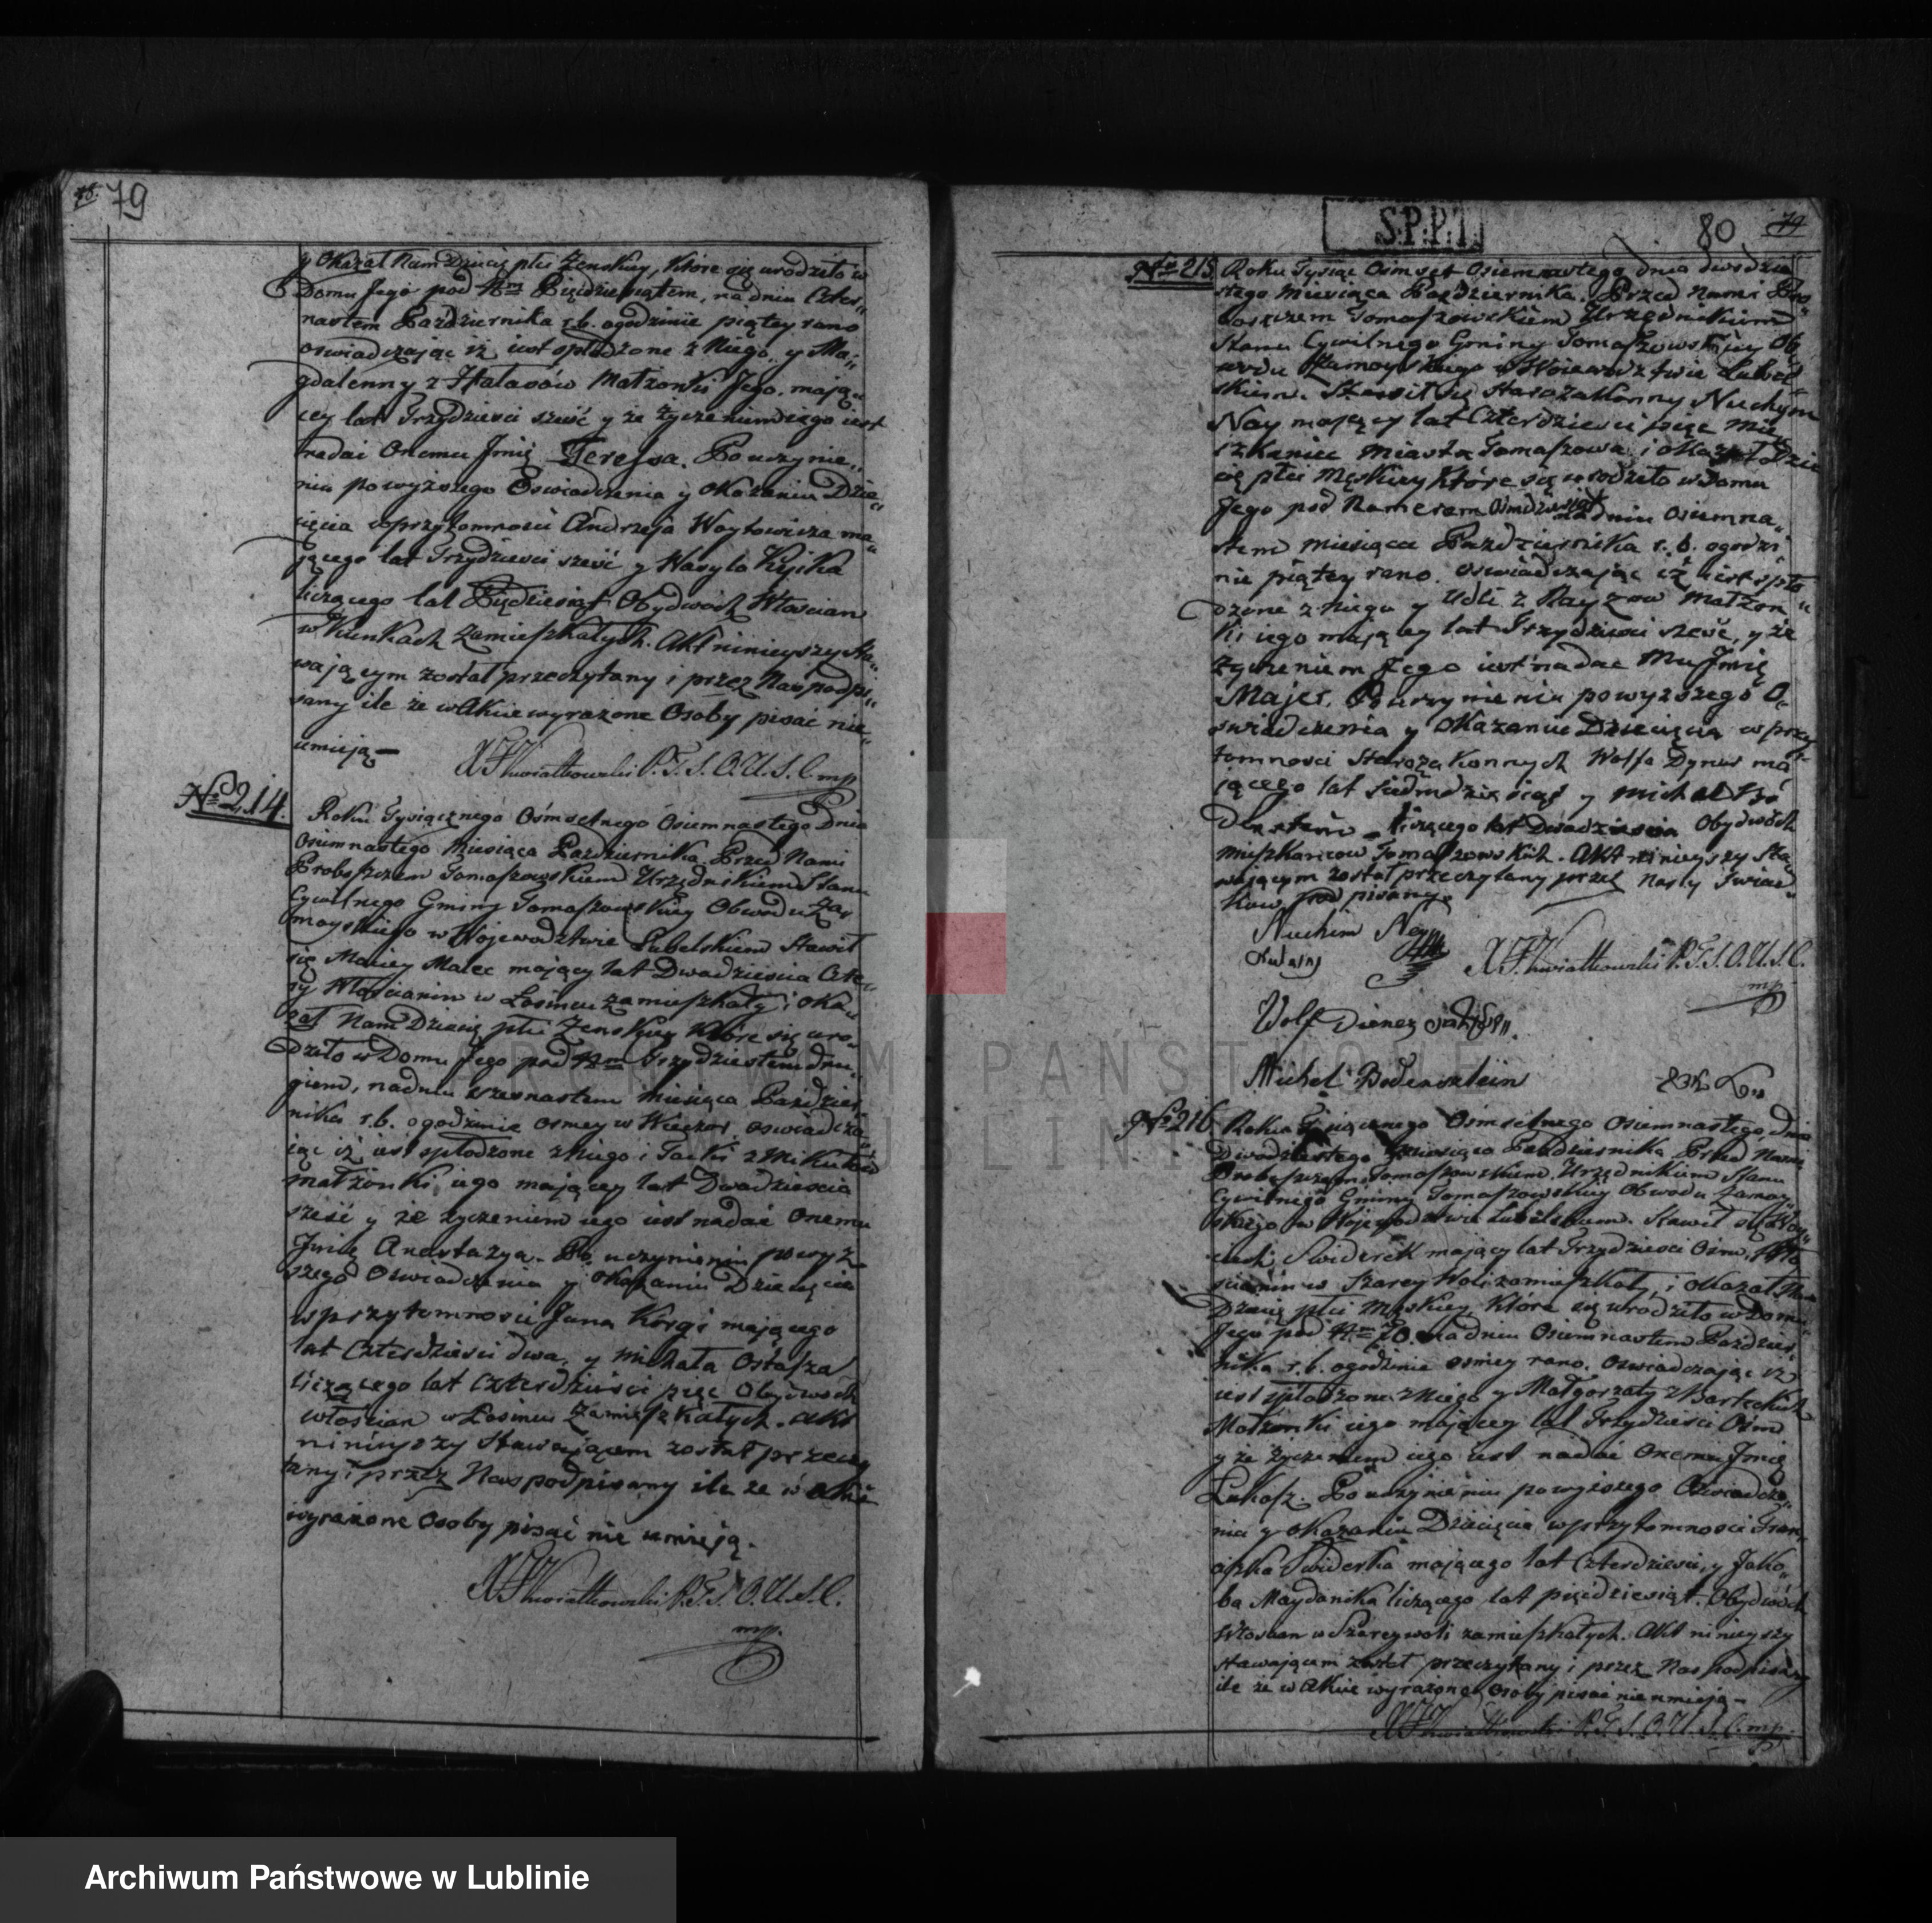 78. 79
y Okazał Nam Dziecię płci Żenskiey, które się urodziło w
Domu Jego pod Nm Pięćdziesiątem, na dniu Czter„
nastem Października r.b. ogodzinie piątey rano
oswiadczając iż iest spłodzone z Niego, y Ma„
gdalenny z Hałasów Małżonki Jego, mają„
cey lat Trzydziesci sześć y że życzeniem iego iest
nadać Onemu Jmię Teressa. Po uczynie„
niu powyższego Oswiadczenia y okazaniu Dzie„
cięcia w przytomności Andrzeja Woytowicza ma„
jącego lat Trzydziesci sześć y Wasyla
liczącego lat Pięćdziesiąt Obydwóch Włościan
w zamieszkałych. Akt ninieyszy Sta„
wającym został przeczytany i przez Nas podpi„
sany ile że w Akcie wyrażone Osoby pisać nie„
umieją —
X Kwiatkowski P.T.S.O.U.S.C. mp
No 214.
Roku Tysiącznego Ośmsetnego Osiemnastego Dnia
Osiemnastego Miesiąca Pazdziernika. Przed Nami
Proboszczem Tomaszowskiem Urzędnikiem Stanu
Cywilnego Gminy Tomaszowskiey Obwodu Za„
moyskiego w Wojewodztwie Lubelskiem Stawił
się Maciey Malec mający lat Dwadziescia Czte„
ry Włościanin w Łosincu zamieszkały, i oka„
zał Nam Dziecię płci Żenskiey które się uro„
dziło w Domu Jego pod Nm Trzydziestem dru„
giem, na dniu szesnastem Miesiąca Paździer„
nika r.b. ogodzinie osmey w Wieczór, oswiadcza„
jąc iż iest spłodzone z niego i z Mikułów
małżonki iego mającey lat Dwadziescia
sześć y że życzeniem iego iest nadać Onemu
Jmię Anastazya. Po uczynieniu powyż„
szego Oswiadczenia y okazaniu Dziecięcia
w przytomnosci Jana Korgi mającego
lat Czterdziesci dwa, y Michała Ostasza
liczącego lat Czterdziesci pięc Obydwóch
włościan w Łosincu zamieszkałych. Akt
ninieyszy Stawającem został przeczy
tany i przez Nas podpisany ile ze w akcie
wyrażone Osoby pisać nie umieją.
X Kwiatkowski P.T.S.O.U.S.C.
mp.
S.P.P.T.
80 79
No 215
Roku Tysiąc Ośmset Osiemnastego, dnia dwudzie
stego Miesiąca Pazdziernika. Przed Nami Pro„
boszczem Tomaszowskiem Urzędnikiem
Stanu Cywilnego Gminy Tomaszowskiey Ob„
wodu Zamoyskiego w Wojewodztwie Lubel„
skiem. Stawił się Starozakonny Nuchym
Nay mający lat Czterdziesci pięc Mie„
szkaniec Miasta Tomaszowa, i okazał Dzie
cię płci Męskiey które się urodziło w Domu
Jego pod Numerem na dniu Osiemna„
stem miesiąca Pazdziernika r. b. ogodzi„
nie piątey rano. oswiadczając iż iest spło„
dzone z niego y Udli z Rayzow Małżon„
ki iego mającey lat Trzydziesci sześć, y że
życzeniem Jego iest nadać Mu Jmię
Majer. Po uczynieniu powyższego O„
swiadczenia y Okazaniu Dziecięcia w przy„
tomności Starozakonnych Wolfa Dyner ma
jącego lat siedmdziesiąt y Michel Bo„
denstein liczącego lat Dwadziescia Obydwóch
mieszkancow Tomaszowskich. Akt ninieyszy Sta„
wającym został przeczytany przez Nas y Swiad„
kow podpisany.
Nuchim Nay
X Kwiatkowski P.T.S.O.U.S.C.
mp
Wolf Diener
Michel Bodensztein
No 216
Roku Tysiącznego Ośmsetnego Osiemnastego, dnia
Dwudziestego Miesiąca Pazdziernika Przed Nami
Proboszczem Tomaszowskiem Urzędnikiem Stanu
Cywilnego Gminy Tomaszowskiey Obwodu Zamoy„
skiego w Wojewodztwie Lubelskiem. Stawił się Woy„
ciech Swiderek mający lat Trzydziesci Ośm, Wło
scianin w Szarey Woli zamieszkały, i okazał Nam
Dziecię płci Męskiey, które się urodziło w Domu
Jego pod Nm 70. na dniu Osiemnastem Paździer„
nika r.b. ogodzinie osmey rano, oswiadczając iż
iest spłodzone z niego y Małgorzaty z
Małżonki iego mającey lat Trzydziesci Ośm
y że życzeniem iego iest nadać Onemu Jmię
Łukasz. Po uczynieniu powyższego Oswiadcze„
nia y okazaniu Dziecięcia w przytomnosci Fran„
ciszka Swiderka mającego lat Czterdziesci, y Jaku„
ba Maydanika liczącego lat pięćdziesiąt. Obydwóch
Włoscian w Szarey woli zamieszkałych. Akt ninieyszy
stawającem został przeczytany i przez Nas podpisany
ile że w Akcie wyrażone Osoby pisać nie umieją —
X Kwiatkowski P.T.S.O.U.S.C. mp.
ARCHIWUM PAŃSTWOWE
W LUBLINIE
Archiwum Państwowe w Lublinie